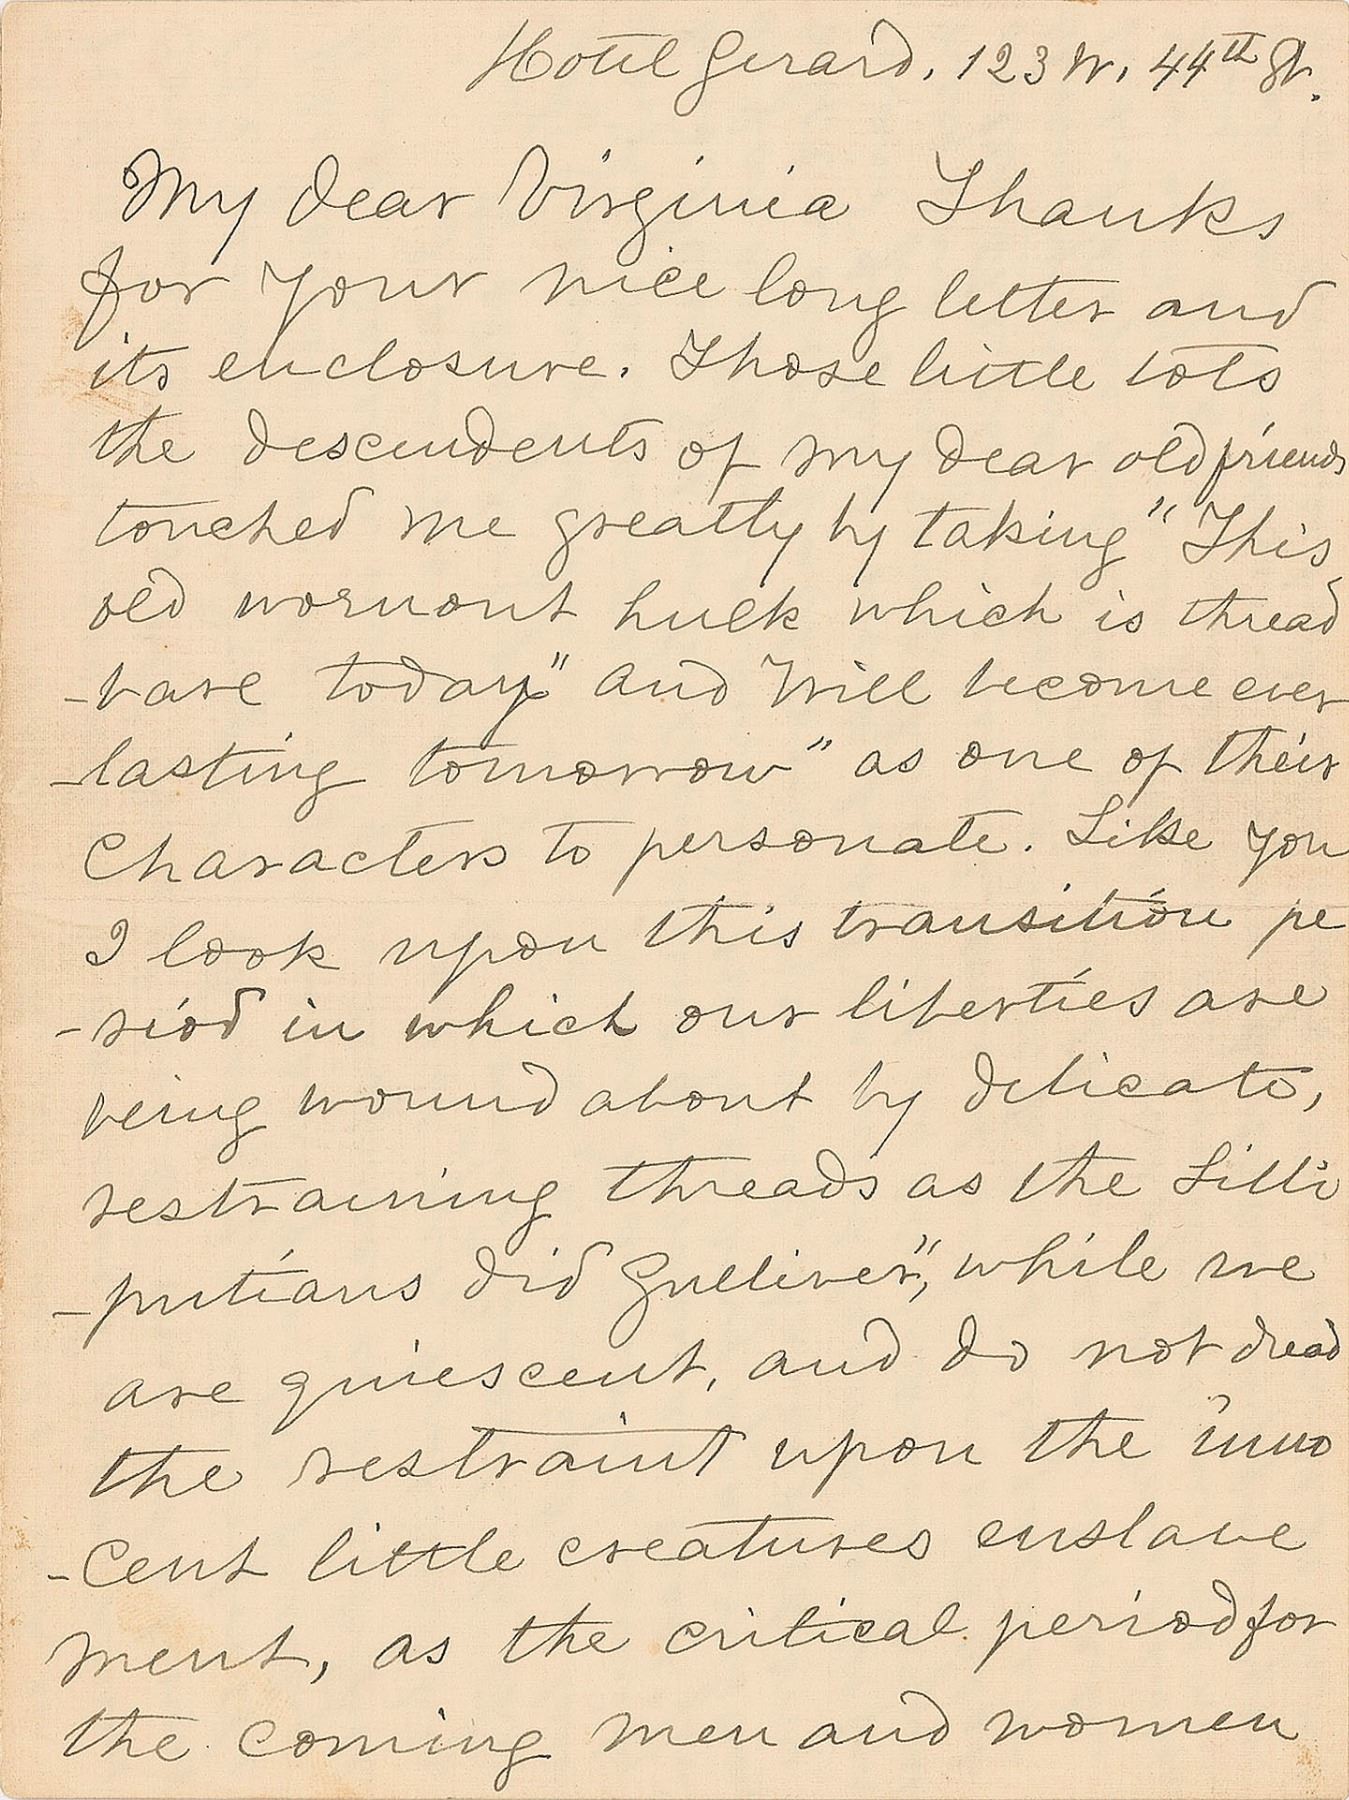 Hotel Gerard. 123 W. 44th St.
My dear Virginia Thanks
for your nice long letter and
its enclosure. Those little tots
the descendents of my dear old friends
touched me greatly by taking "This
old wornout hulk which is thread
-bare today" and Will become ever
-lasting tomorrow" as one of their
Characters to personate. Like you
I look upon this transition pe
-riod in which our liberties are
being wound about by delicate,
restraining threads as the Lilli
-putians did Gulliver", while we
are quiescent, and do not dread
the restraint upon the inno
-cent little creatures enslave
ment, as the critical period for
the coming men and women